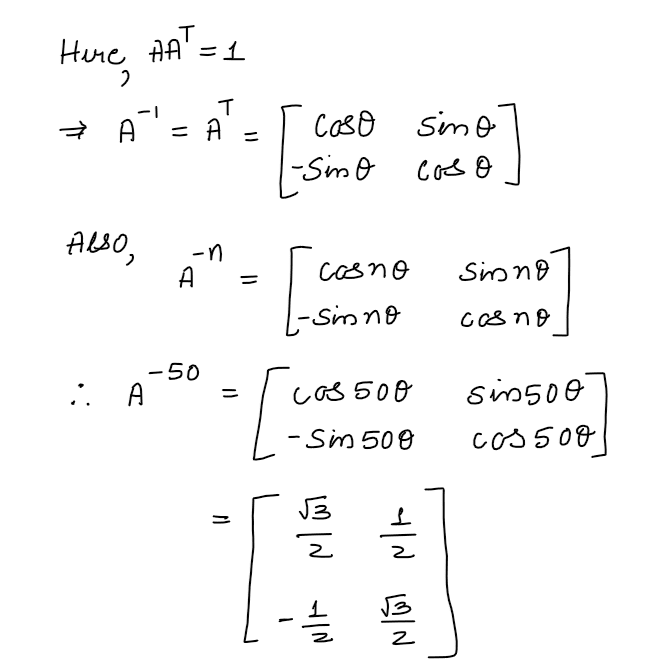 Here, AA^T = 1
⇒ A^-1 = A^T = [cosθ sinθ
-Sinθ cosθ]
Also, A^-n = [cosnθ sinnθ
-sinnθ cosnθ]
∴ A^-50 = [cos50θ sin50θ
-Sin50θ cos50θ]
= [√3/2 1/2
-1/2 √3/2]